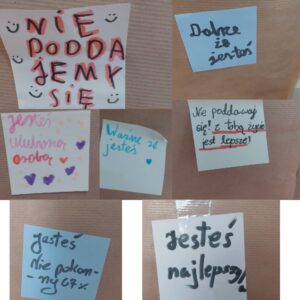 NIE
PODDA
JEMY
SIĘ
Dobrze
że
jesteś
Jesteś
ulubioną
osobą
Ważne że
jesteś
Nie poddawaj
się! z tobą życie
jest lepsze!
Jesteś
Nie pokon-
ny
Jesteś
najlepszy!